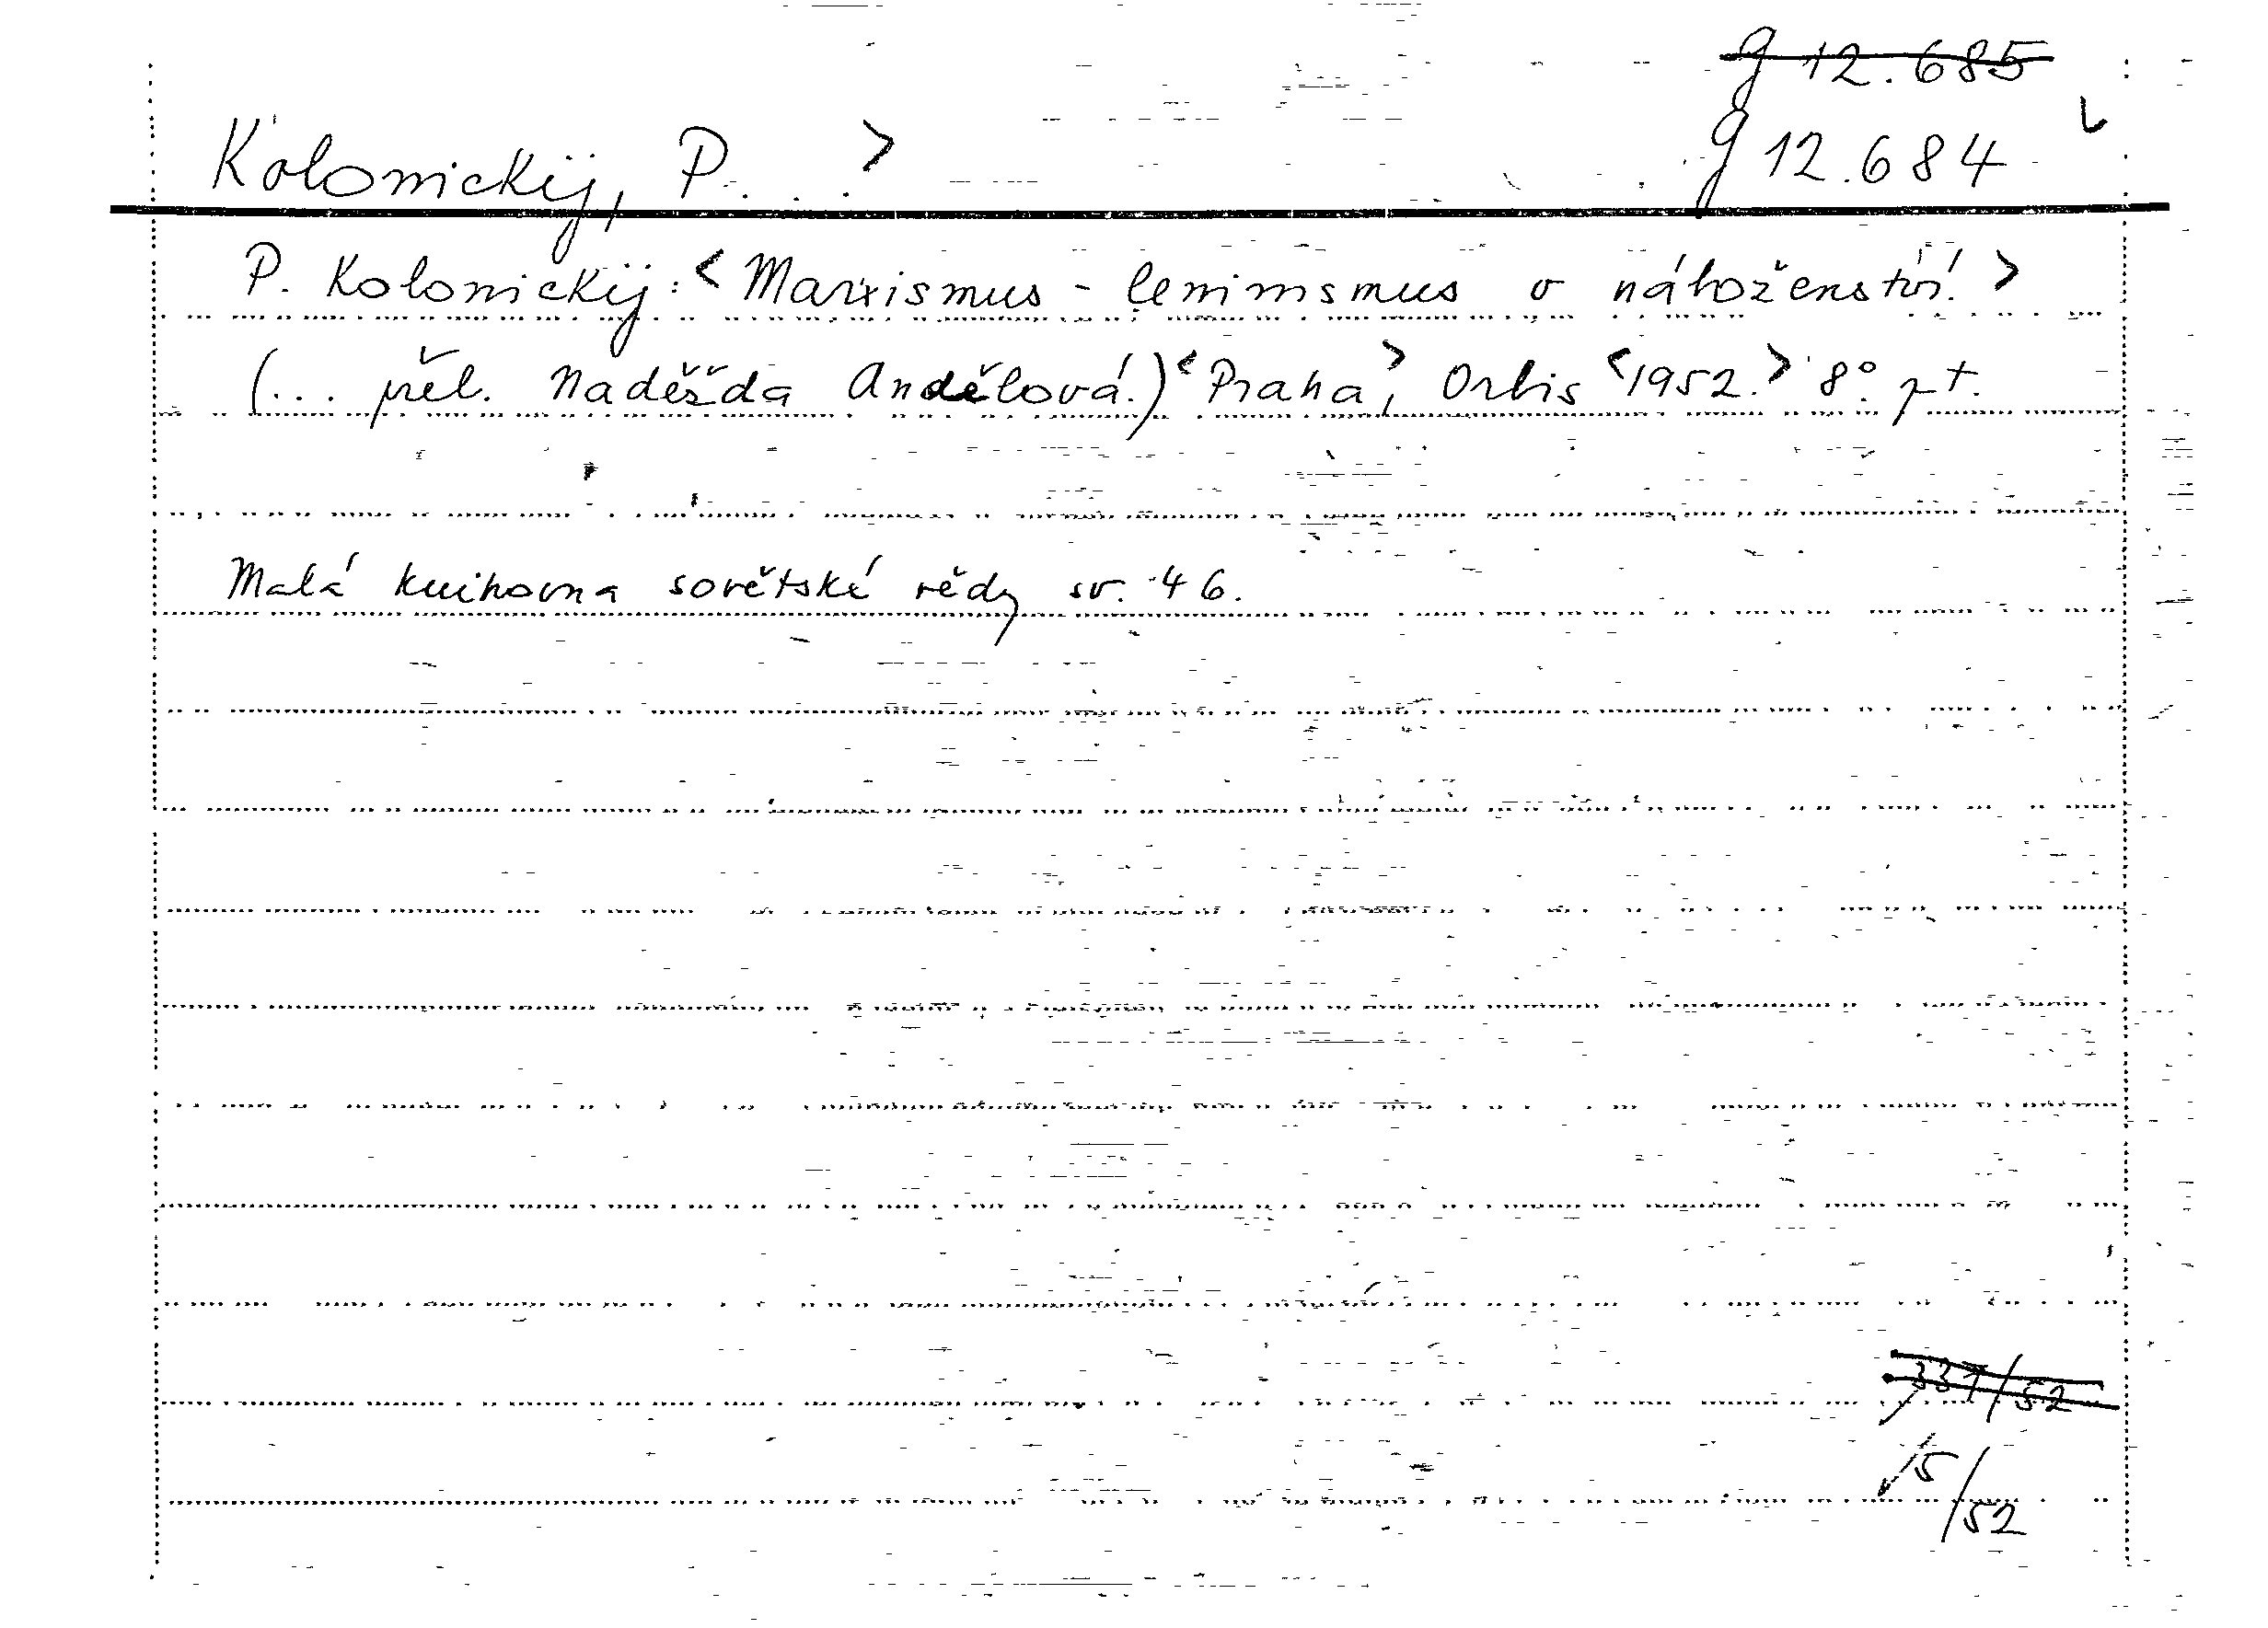 g 12.685
Kolonickij, P. . . > g 12.684
P. Kolonickij: <Marxismus - leninismus o náboženství.>
(... přel. Naděžda Andělová.) <Praha>, Orbis <1952.> 8°. pt.
Malá knihovna sovětské vědy sv. 46.
337/52
5/52